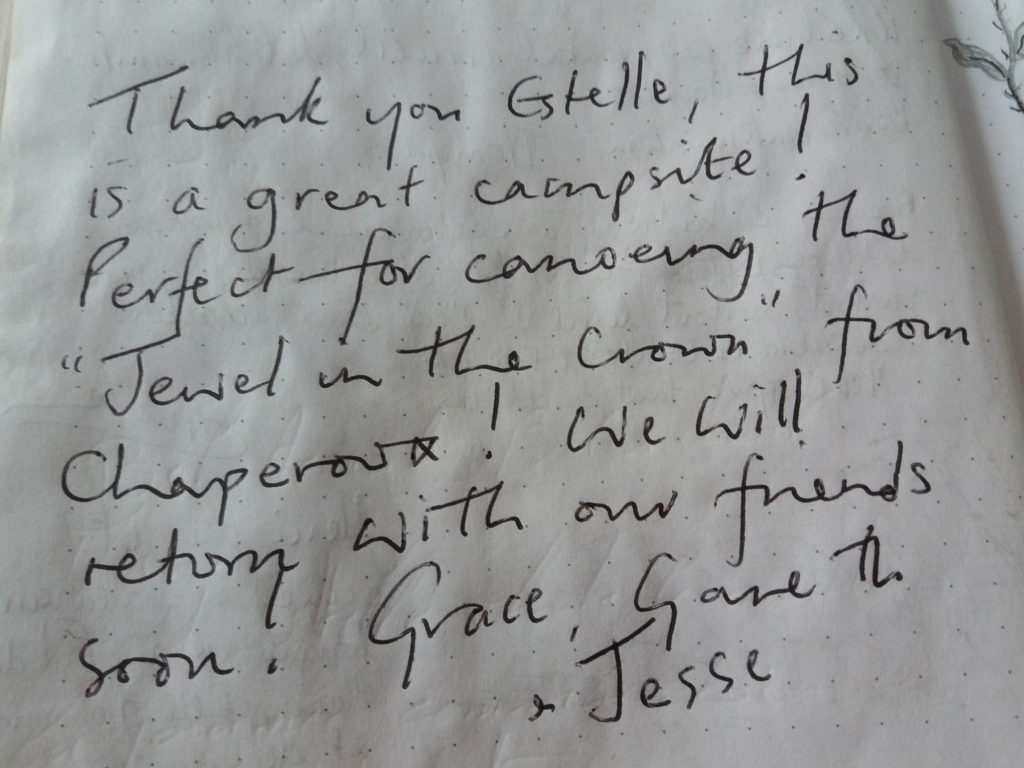 Thank you Estelle, this
is a great campsite!
Perfect for canoeing the
"Jewel in the Crown" from
Chaperoux! We will
return with our friends
soon. Grace, Gareth
& Jesse